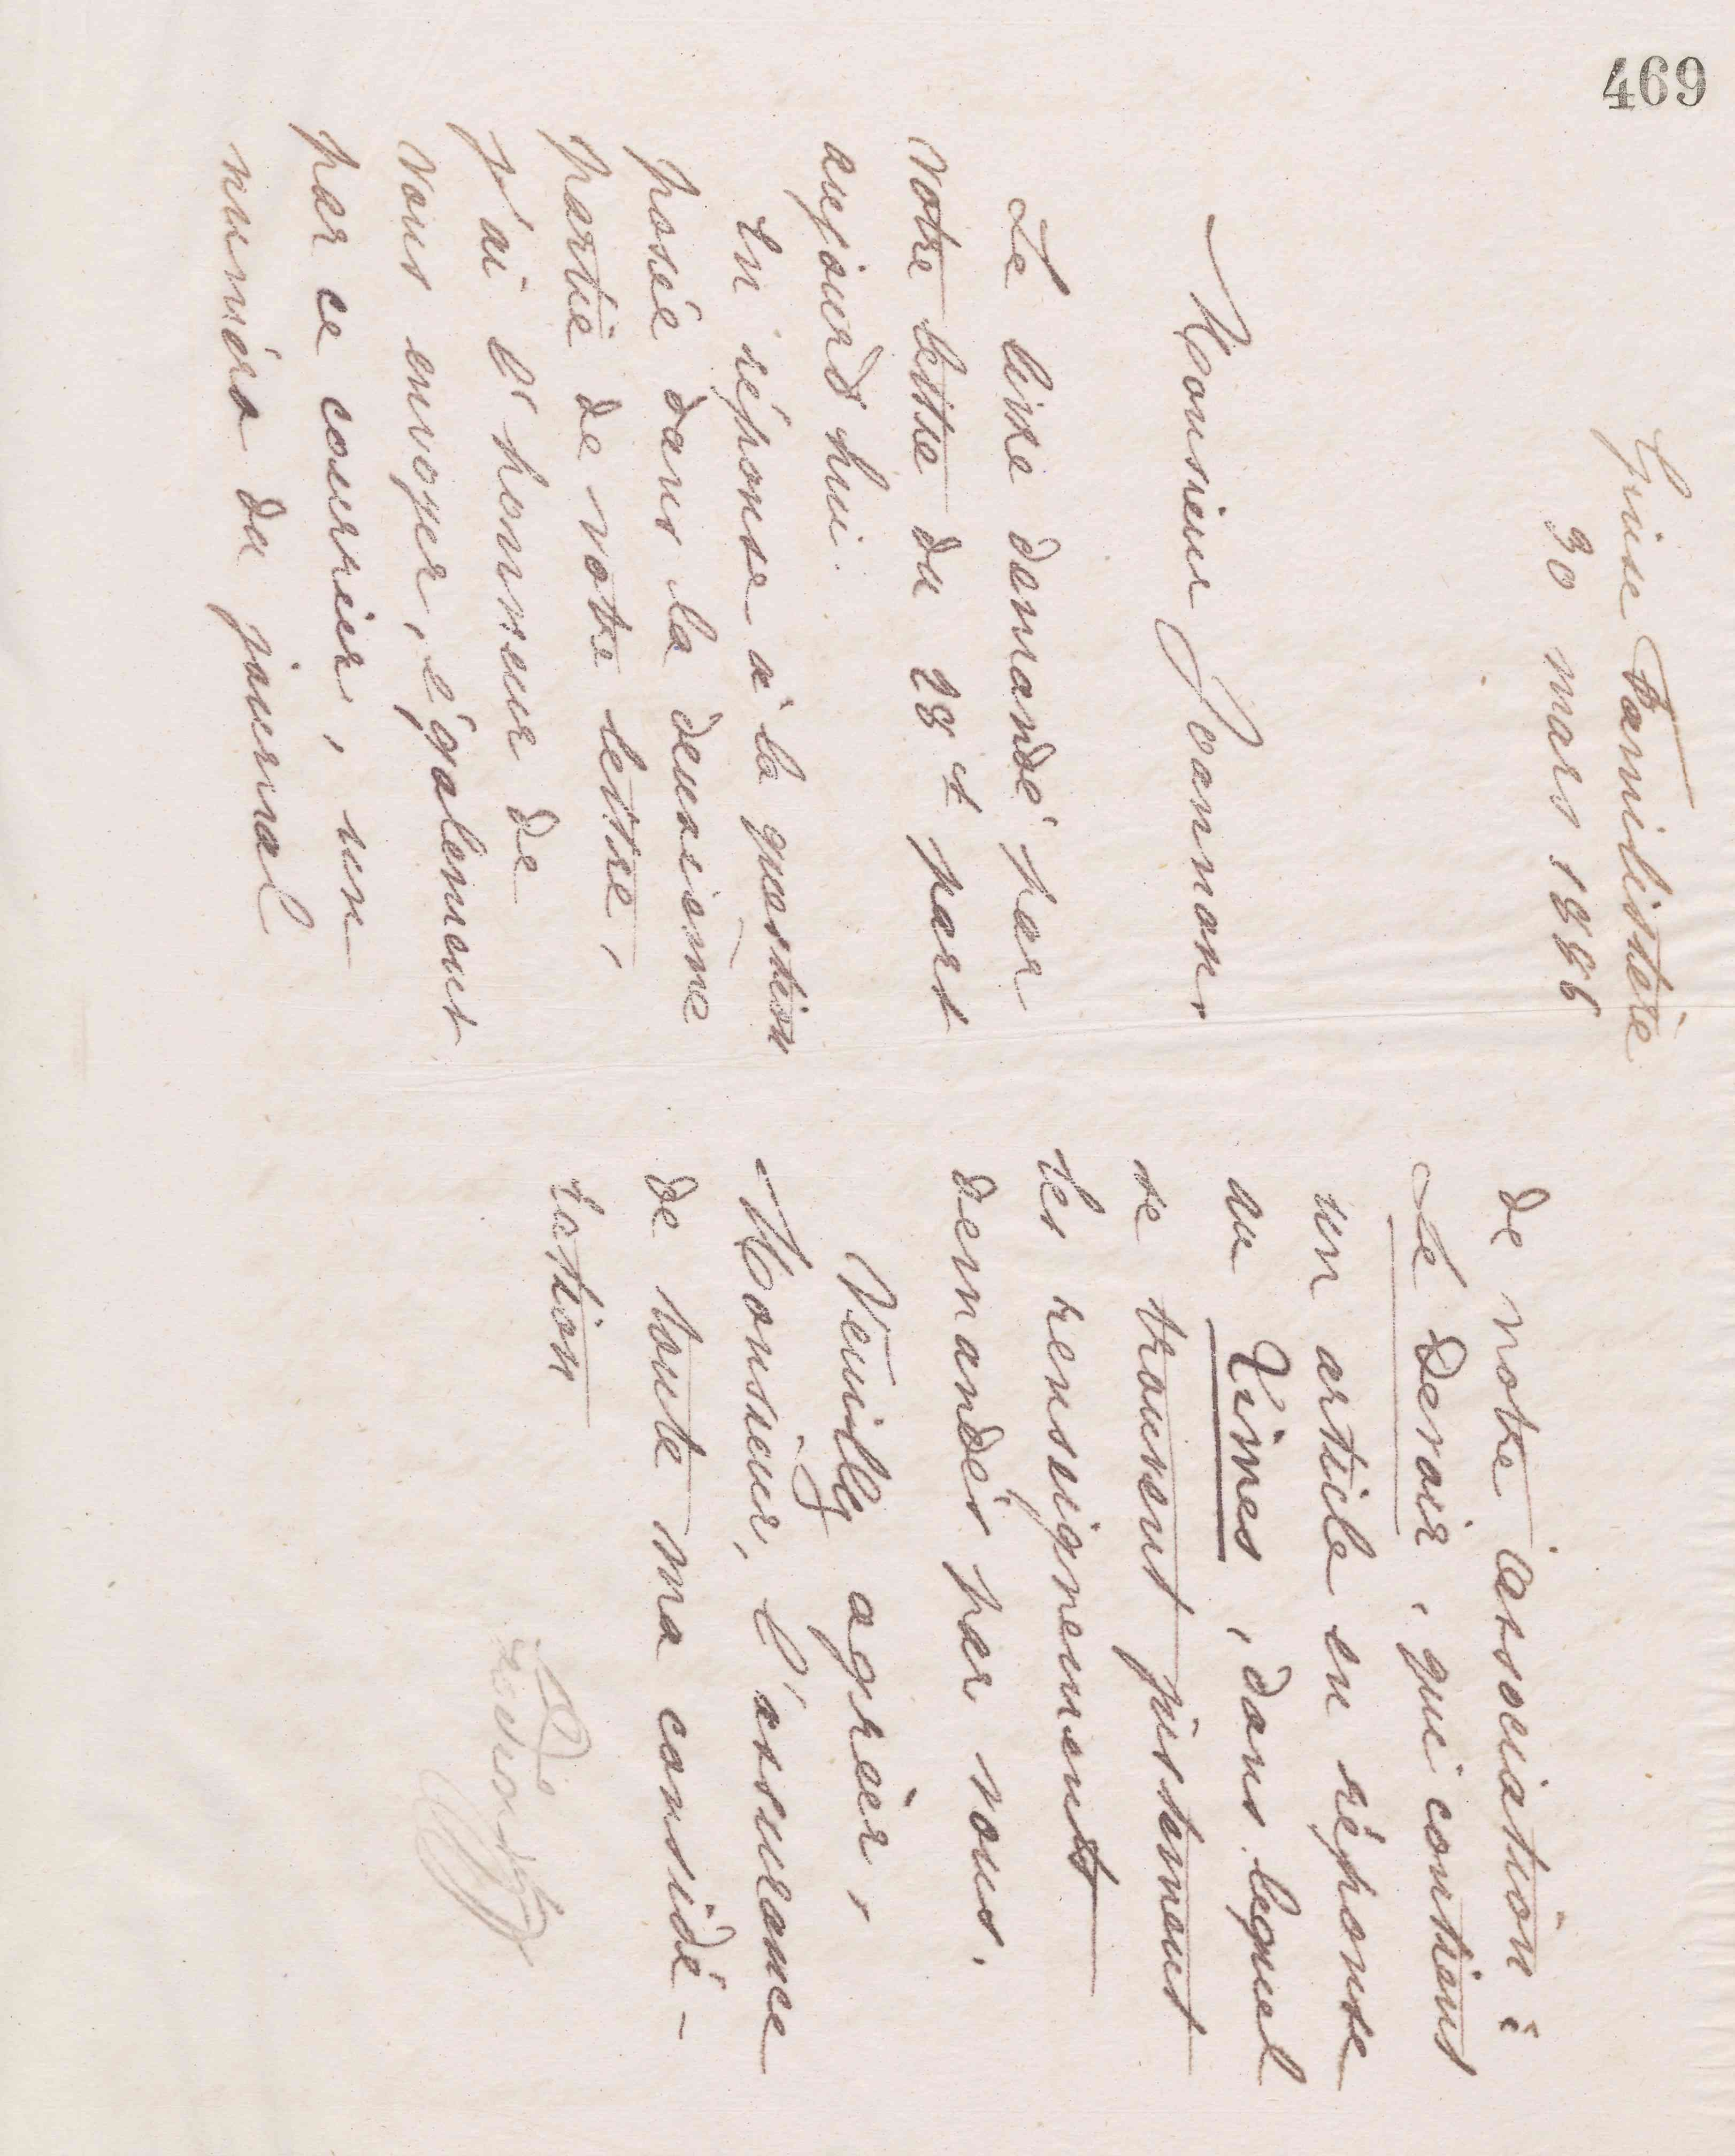 469
Guise Familistère
30 mars 1886
Monsieur Joannon,
Le livre demandé par
votre lettre du 28 ct part
aujourd'hui.
En réponse à la question
posée dans la deuxième
partie de votre lettre,
j'ai l'honneur de
vous envoyer, également
par ce courrier, un
numéro du journal
de notre association:
Le Devoir, qui contient
un article en réponse
au Times, dans lequel
se trouvent justement
les renseignements
demandés par vous.
Veuillez agréer,
Monsieur, l'assurance
de toute ma considé-
ration